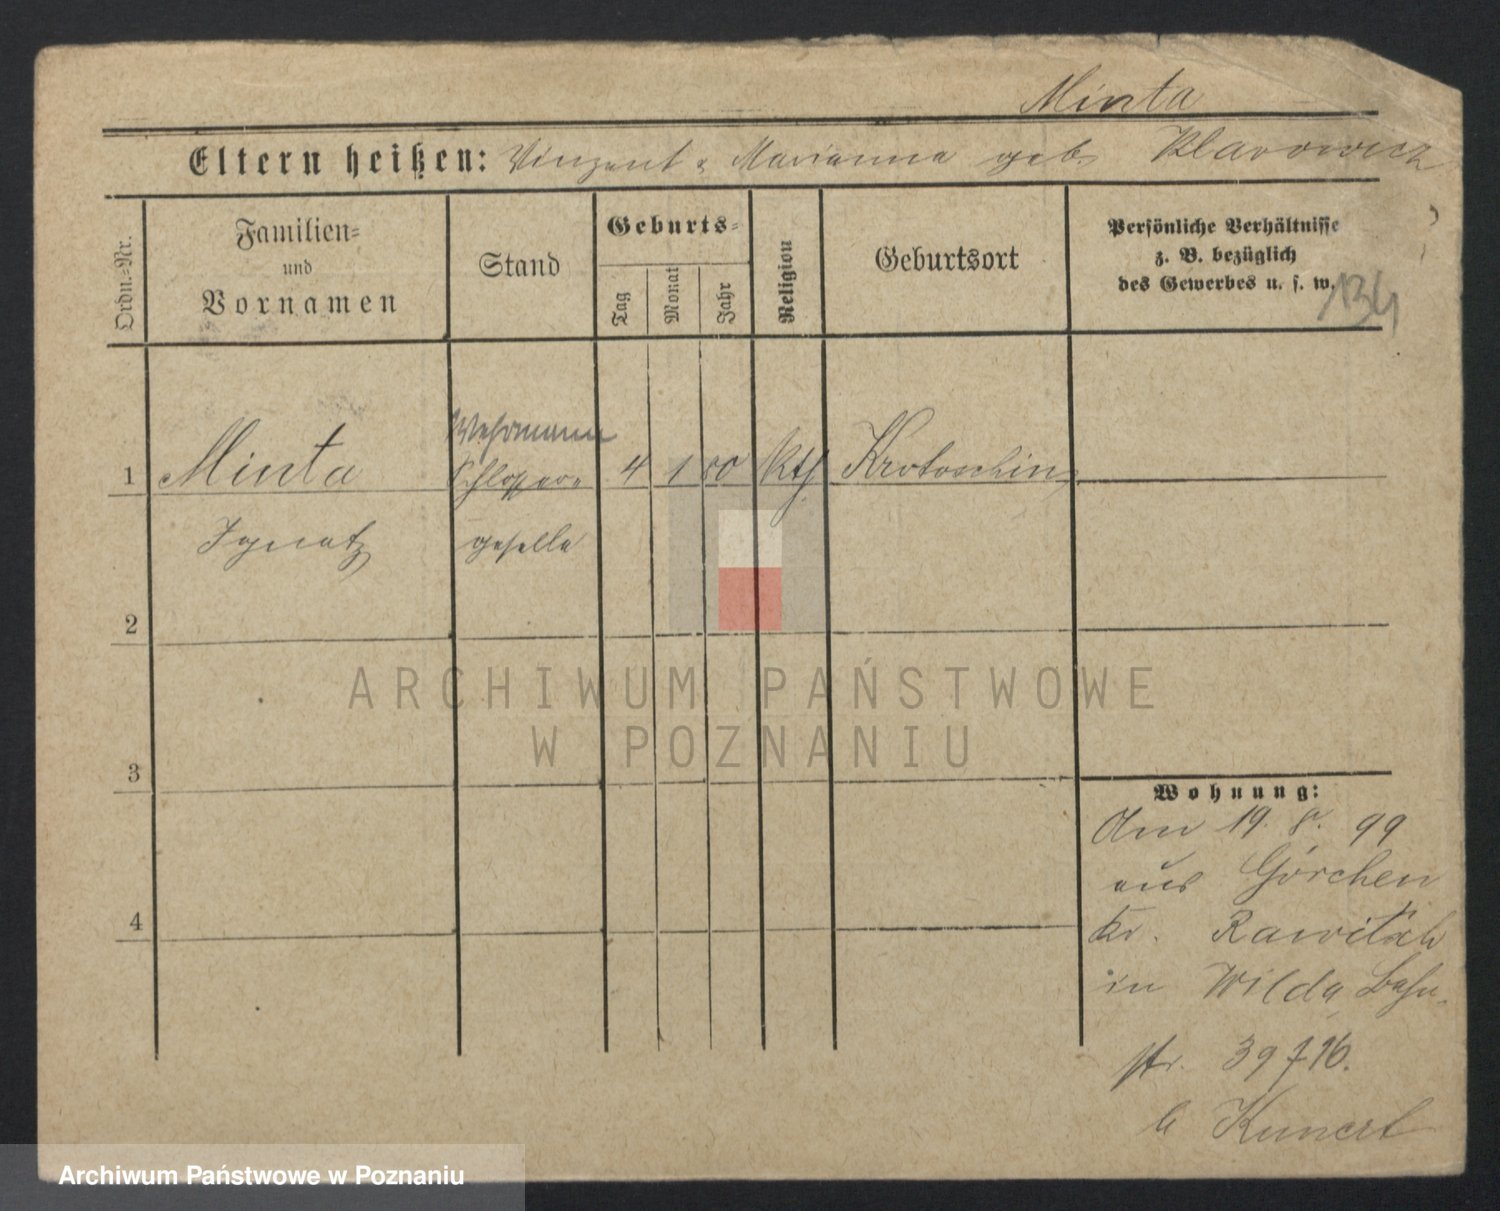 Minta
Eltern heißen: Vinzent & Marianna geb. Klarowicz
Ordn.-Nr.
Familien-
und
Vornamen
Stand
Geburts-
Tag
Monat
Jahr
Religion
Geburtsort
Persönliche Verhältnisse
z. B. bezüglich
des Gewerbes u. s. w.
134
Wehrmann
1 Minta Schlosser- 4 1 80 kth Krotoschin
Ignatz geselle
2
3
4
ARCHIWUM PAŃSTWOWE
W POZNANIU
Wohnung:
Am 19. 8. 99
aus Görchen
Kr. Rawitsch
in Wilda Bahn-
str. 39
b Kunert
Archiwum Państwowe w Poznaniu